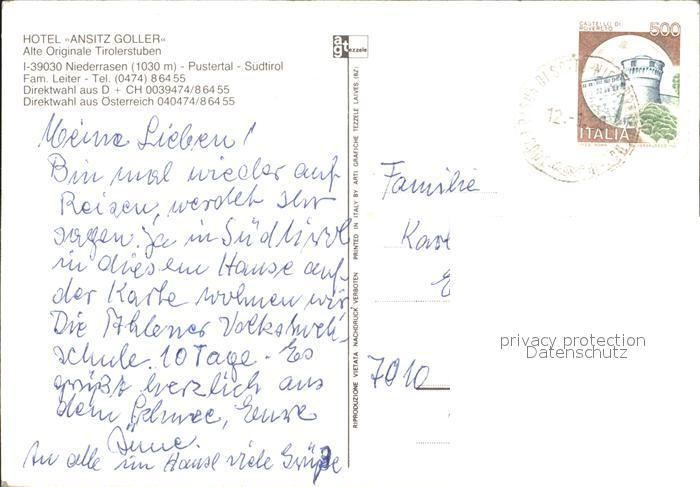 HOTEL »ANSITZ GOLLER«
Alte Originale Tirolerstuben
I-39030 Niederrasen (1030 m) - Pustertal - Südtirol
Fam. Leiter - Tel. (0474) 8 64 55
Direktwahl aus D + CH 0039474/8 64 55
Direktwahl aus Österreich 040474/8 64 55
Meine Lieben!
Bin mal wieder auf
Reisen, werdet Ihr
sagen. Ja in Südtirol
in diesem Hause auf
der Karte wohnen wir
Die Ahlener Volkshoch
schule. 10 Tage. Es
grüßt herzlich aus
dem Schnee, Eure
Änne.
An alle im Hause viele Grüße
agt tezzele
RIPRODUZIONE VIETATA NACHDRUCK VERBOTEN PRINTED IN ITALY BY ARTI GRAFICHE TEZZELE LAIVES (BZ)
CASTELLO DI
ROVERETO
500
ITALIA
12.-
Familie
7010
privacy protection
Datenschutz